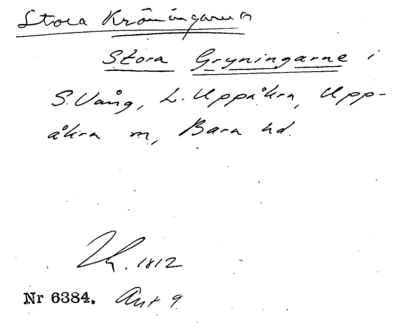 Stora Kröningarna
Stora Gryningarne i
S. Vång, L. Uppåkra, Upp-
åkra sn, Bara hd.
1812
Nr 6384. Ant 9.